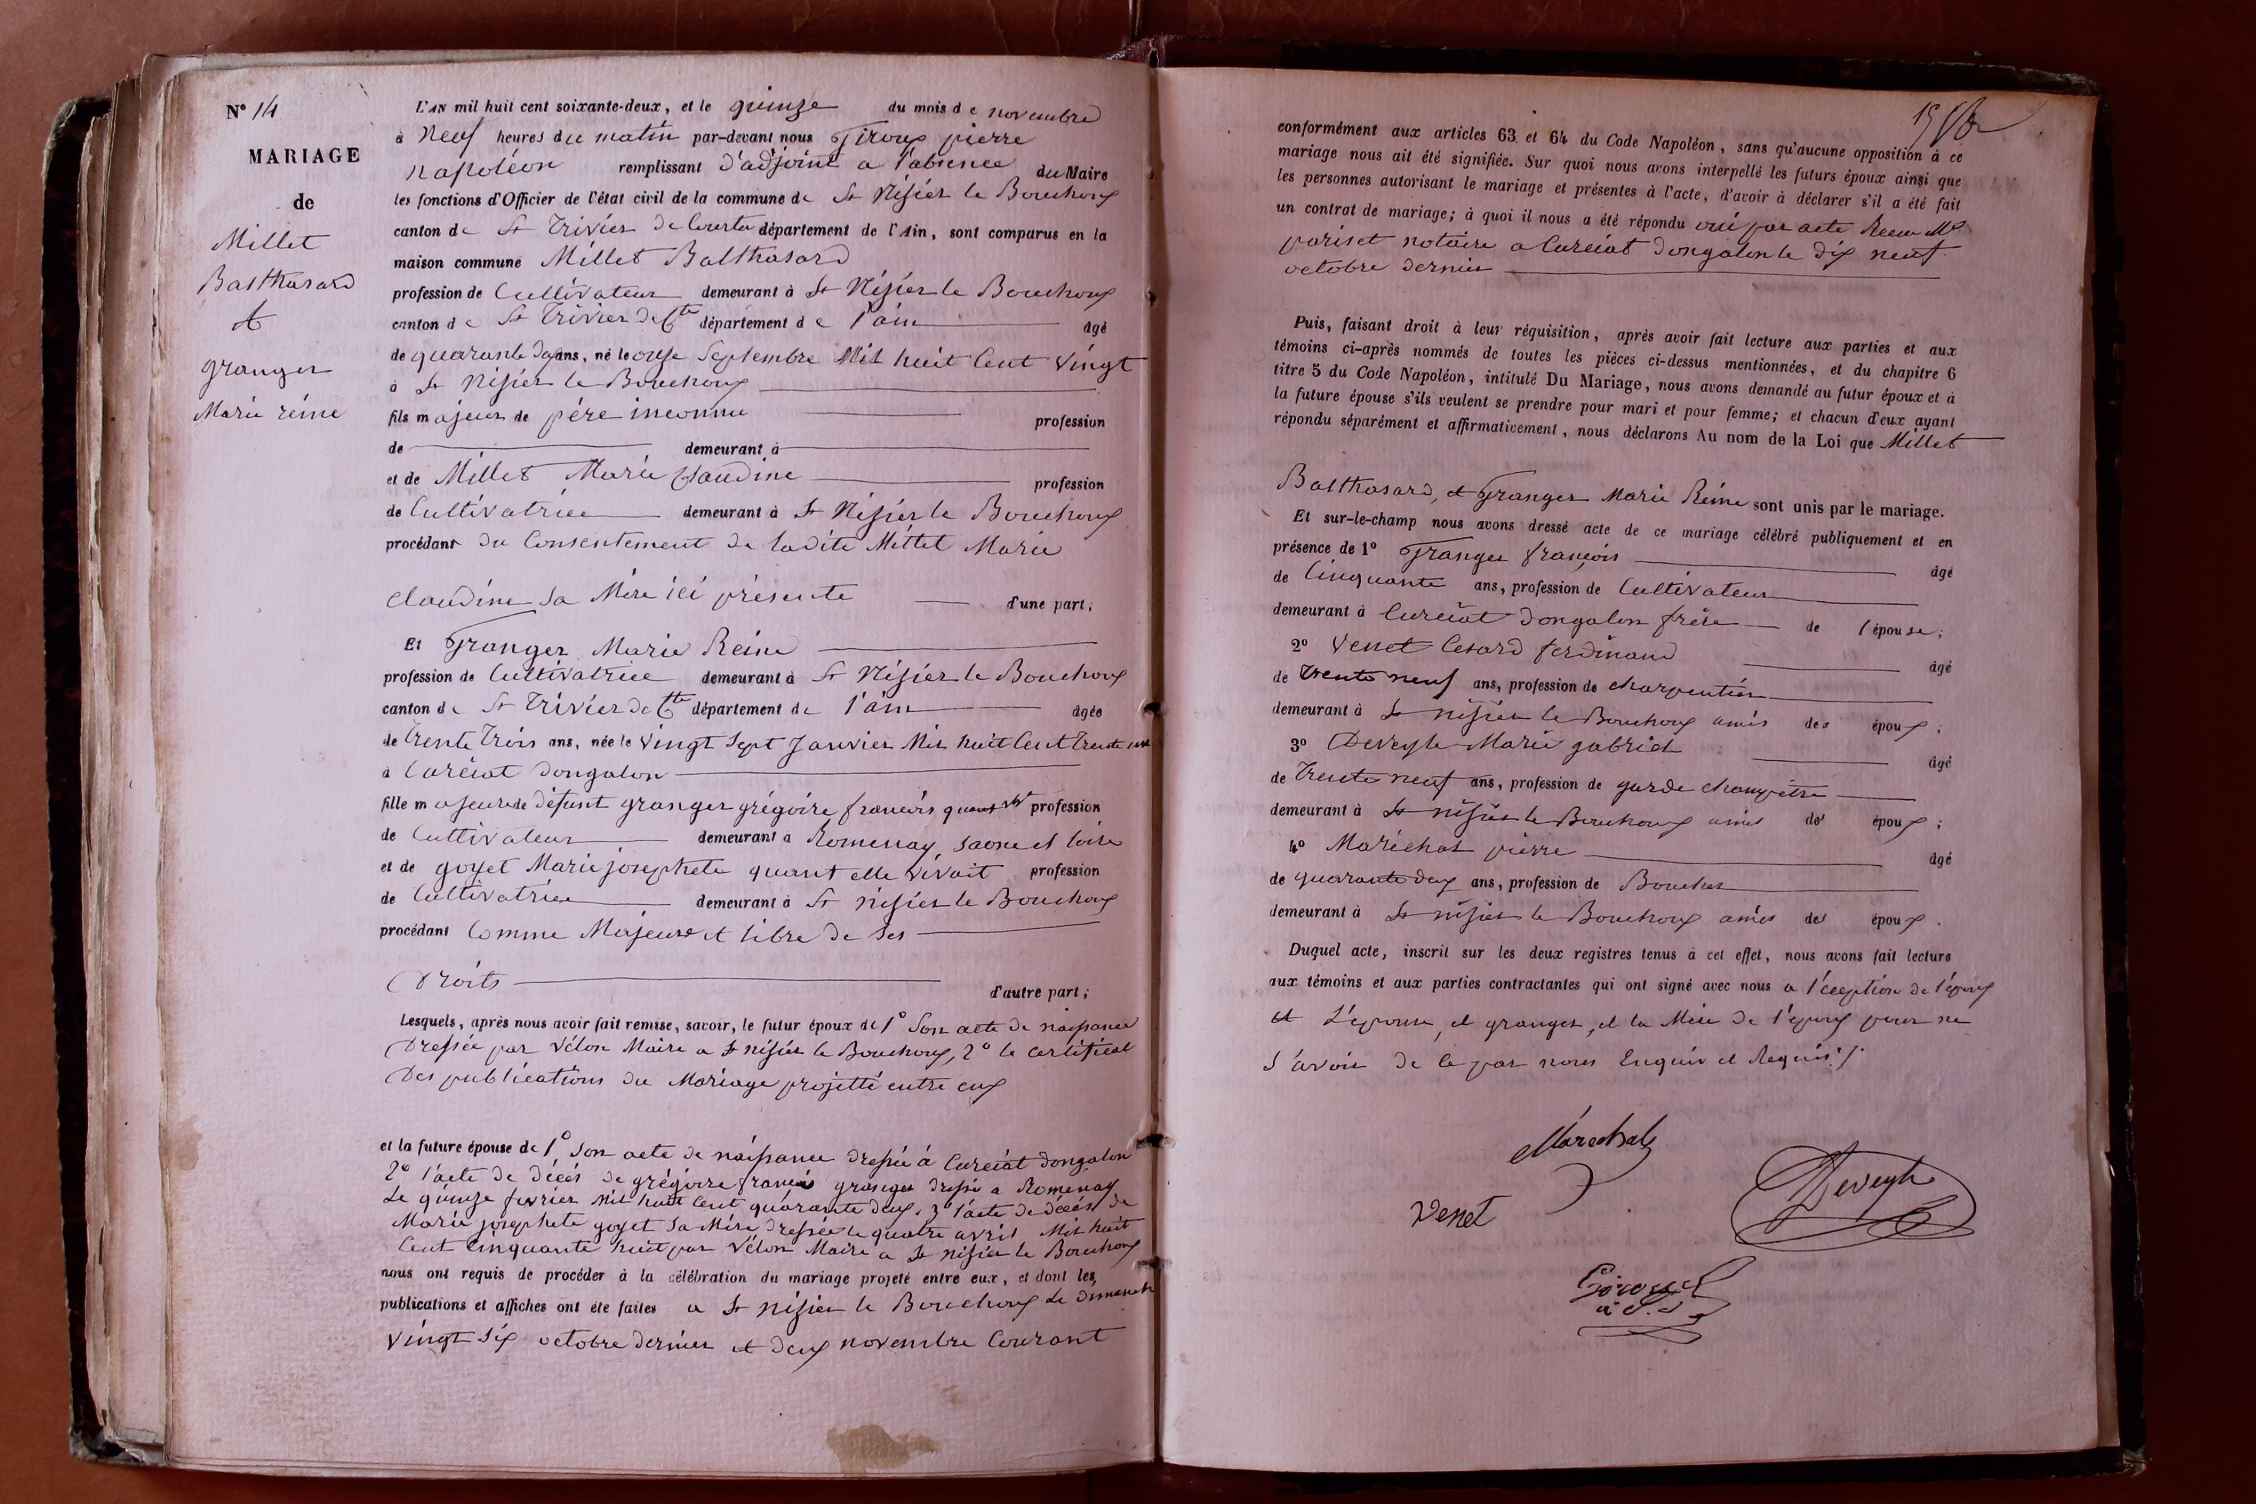 N° 14
MARIAGE
de
Millet
Balthasard
et
granger
Marie réine
L'AN mil huit cent soixante-deux, et le quinze du mois de novembre
à Neuf heures du matin par-devant nous Giroux pierre
Napoléon remplissant d'adjoint a l'absence du Maire
les fonctions d'Officier de l'état civil de la commune de St Nisier le Bouchoux
canton de St Trivier de Courtes département de l'Ain, sont comparus en la
maison commune Millet Balthasard
profession de Cultivateur demeurant à St Nisier le Bouchoux
canton de St Trivier de Ctes département de l'ain âgé
de quarante deux ans, né le onze Septembre Mil huit Cent vingt
à St Nisier le Bouchoux
fils majeur de père inconnu profession
de demeurant à
et de Millet Marie Claudine profession
de Cultivatrice demeurant à St Nisier le Bouchoux
procédant du Consentement de ladite Millet Marie
Claudine sa Mère ici présente d'une part;
Et Granger Marie Reine
profession de Cultivatrice demeurant à St Nisier le Bouchoux
canton de St Trivier de Ctes département de l'ain âgée
de Trente Trois ans, née le vingt Sept Janvier Mil huit Cent Trente
à Curciat dongalon
fille majeure de défunt granger grégoire francois quant profession
de Cultivateur demeurant à Romenay saone et loire
et de goyet Marie josephete quant elle vivait profession
de Cultivatrice demeurant à St nisier le Bouchoux
procédant Comme Majeure et libre de ses
Droits d'autre part;
Lesquels, après nous avoir fait remise, savoir, le futur époux de 1° Son acte de naissance
Dressée par Vélon Maire a St nisier le Bouchoux, 2° le certificat
Des publications du Mariage projetté entre eux
et la future épouse de 1° Son acte de naissance dressée à Curciat dongalon
2° l'acte de décés de grégoire francois granger dressé a Romenay
Le quinze fevrier Mil huit Cent quarante deux. 3° l'acte de décés de
Marie josephete goyet sa Mère dressée le quatre avril Mil huit
Cent Cinquante huit par Vélon Maire a St nisier le Bouchoux
nous ont requis de procéder à la célébration du mariage projeté entre eux, et dont les
publications et affiches ont été faites a St nisier le Bouchoux Le dimanche
vingt six octobre dernier et deux novembre Courant
15
conformément aux articles 63 et 64 du Code Napoléon, sans qu'aucune opposition à ce
mariage nous ait été signifiée. Sur quoi nous avons interpellé les futurs époux ainsi que
les personnes autorisant le mariage et présentes à l'acte, d'avoir à déclarer s'il a été fait
un contrat de mariage; à quoi il nous a été répondu oui par acte Recu Me
pariset notaire a Curciat dongalon le dix neuf
octobre dernier
Puis, faisant droit à leur réquisition, après avoir fait lecture aux parties et aux
témoins ci-après nommés de toutes les pièces ci-dessus mentionnées, et du chapitre 6
titre 5 du Code Napoléon, intitulé Du Mariage, nous avons demandé au futur époux et à
la future épouse s'ils veulent se prendre pour mari et pour femme; et chacun d'eux ayant
répondu séparément et affirmativement, nous déclarons Au nom de la Loi que Millet
Balthasard, et Granger Marie Reine sont unis par le mariage.
Et sur-le-champ nous avons dressé acte de ce mariage célébré publiquement et en
présence de 1° Granger françois âgé
de Cinquante ans, profession de Cultivateur
demeurant à Curciat dongalon frère de l'épouse;
2° Venet Cesard ferdinand âgé
de trente neuf ans, profession de charpentier
demeurant à St nisier le Bouchoux amis des époux;
3° Deveyle Marie gabriel âgé
de Trente neuf ans, profession de garde champètre
demeurant à St nisier le Bouchoux amis des époux;
4° Maréchal pierre âgé
de quarante deux ans, profession de Boucher
demeurant à St nisier le Bouchoux amis des époux.
Duquel acte, inscrit sur les deux registres tenus à cet effet, nous avons fait lecture
aux témoins et aux parties contractantes qui ont signé avec nous a l'éception de l'époux
et L'épouse, et granger, et la Mère de l'époux pour ne
savoir de ce par nous Enquis et Requis
Maréchal
Venet
Deveyle